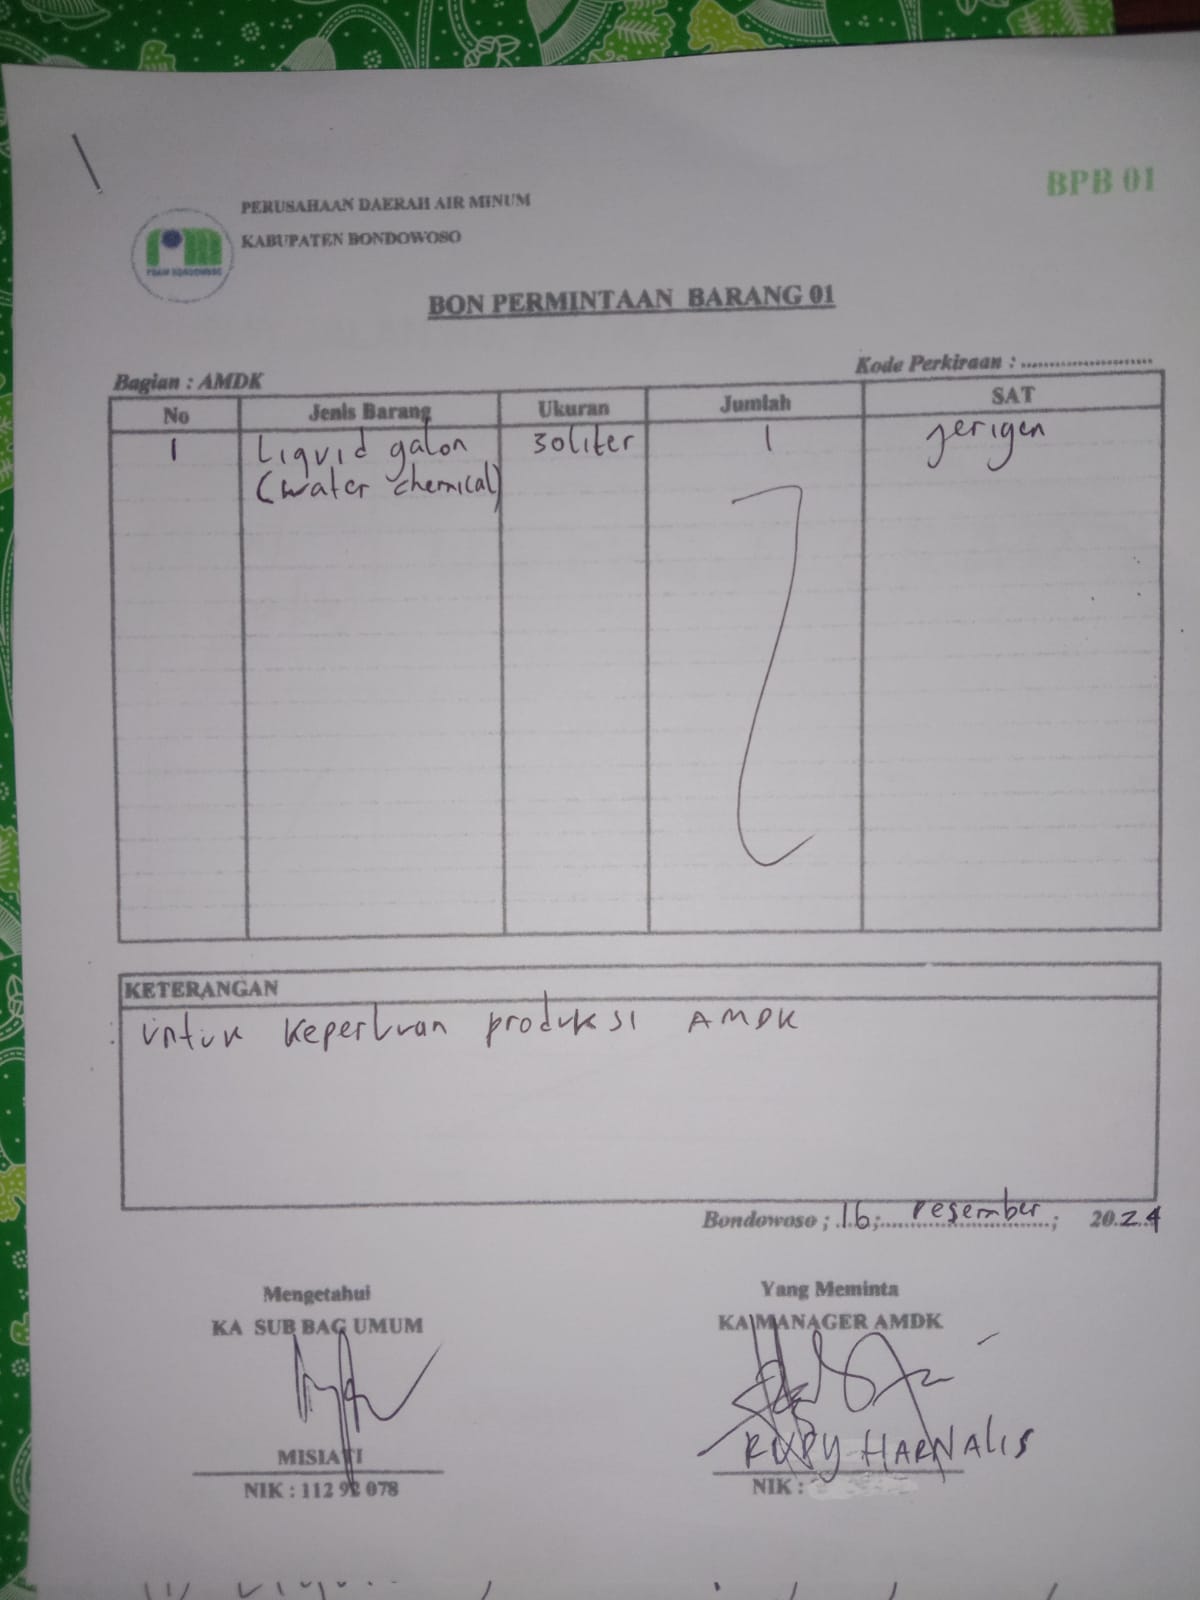 BPB 01
PERUSAHAAN DAERAH AIR MINUM
KABUPATEN BONDOWOSO
PDAM BONDOWOSO
BON PERMINTAAN BARANG 01
Bagian : AMDK
Kode Perkiraan : ........................
No Jenis Barang Ukuran Jumlah SAT
1 Liquid galon 30 liter 1 jerigen
(water chemical)
KETERANGAN
Untuk keperluan produksi AMDK
Bondowoso ; 16 ; Desember ; 2024
Mengetahui
KA SUB BAG UMUM
MISIATI
NIK : 112 92 078
Yang Meminta
KA MANAGER AMDK
RUDY HARNALIS
NIK :